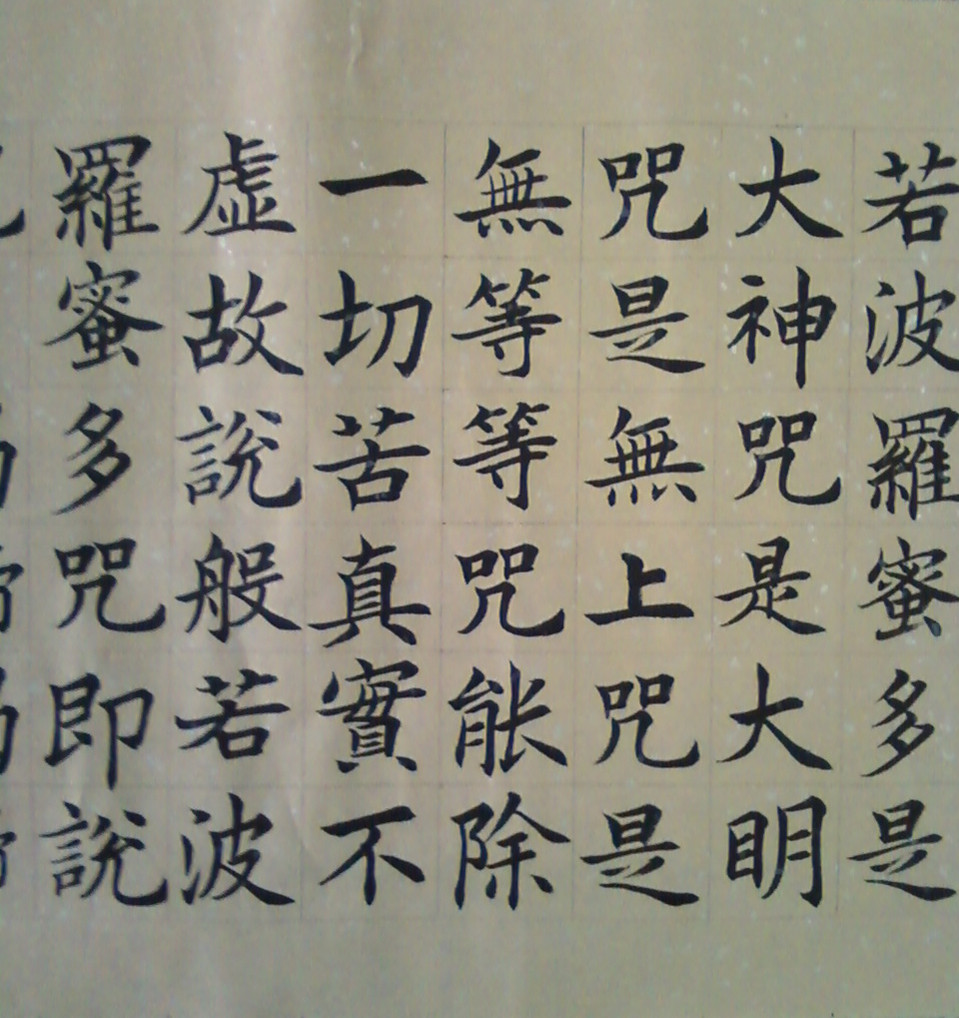 若波羅蜜多是
大神咒是大明
咒是無上咒是
無等等咒能除
一切苦真實不
虛故說般若波
羅蜜多咒即說